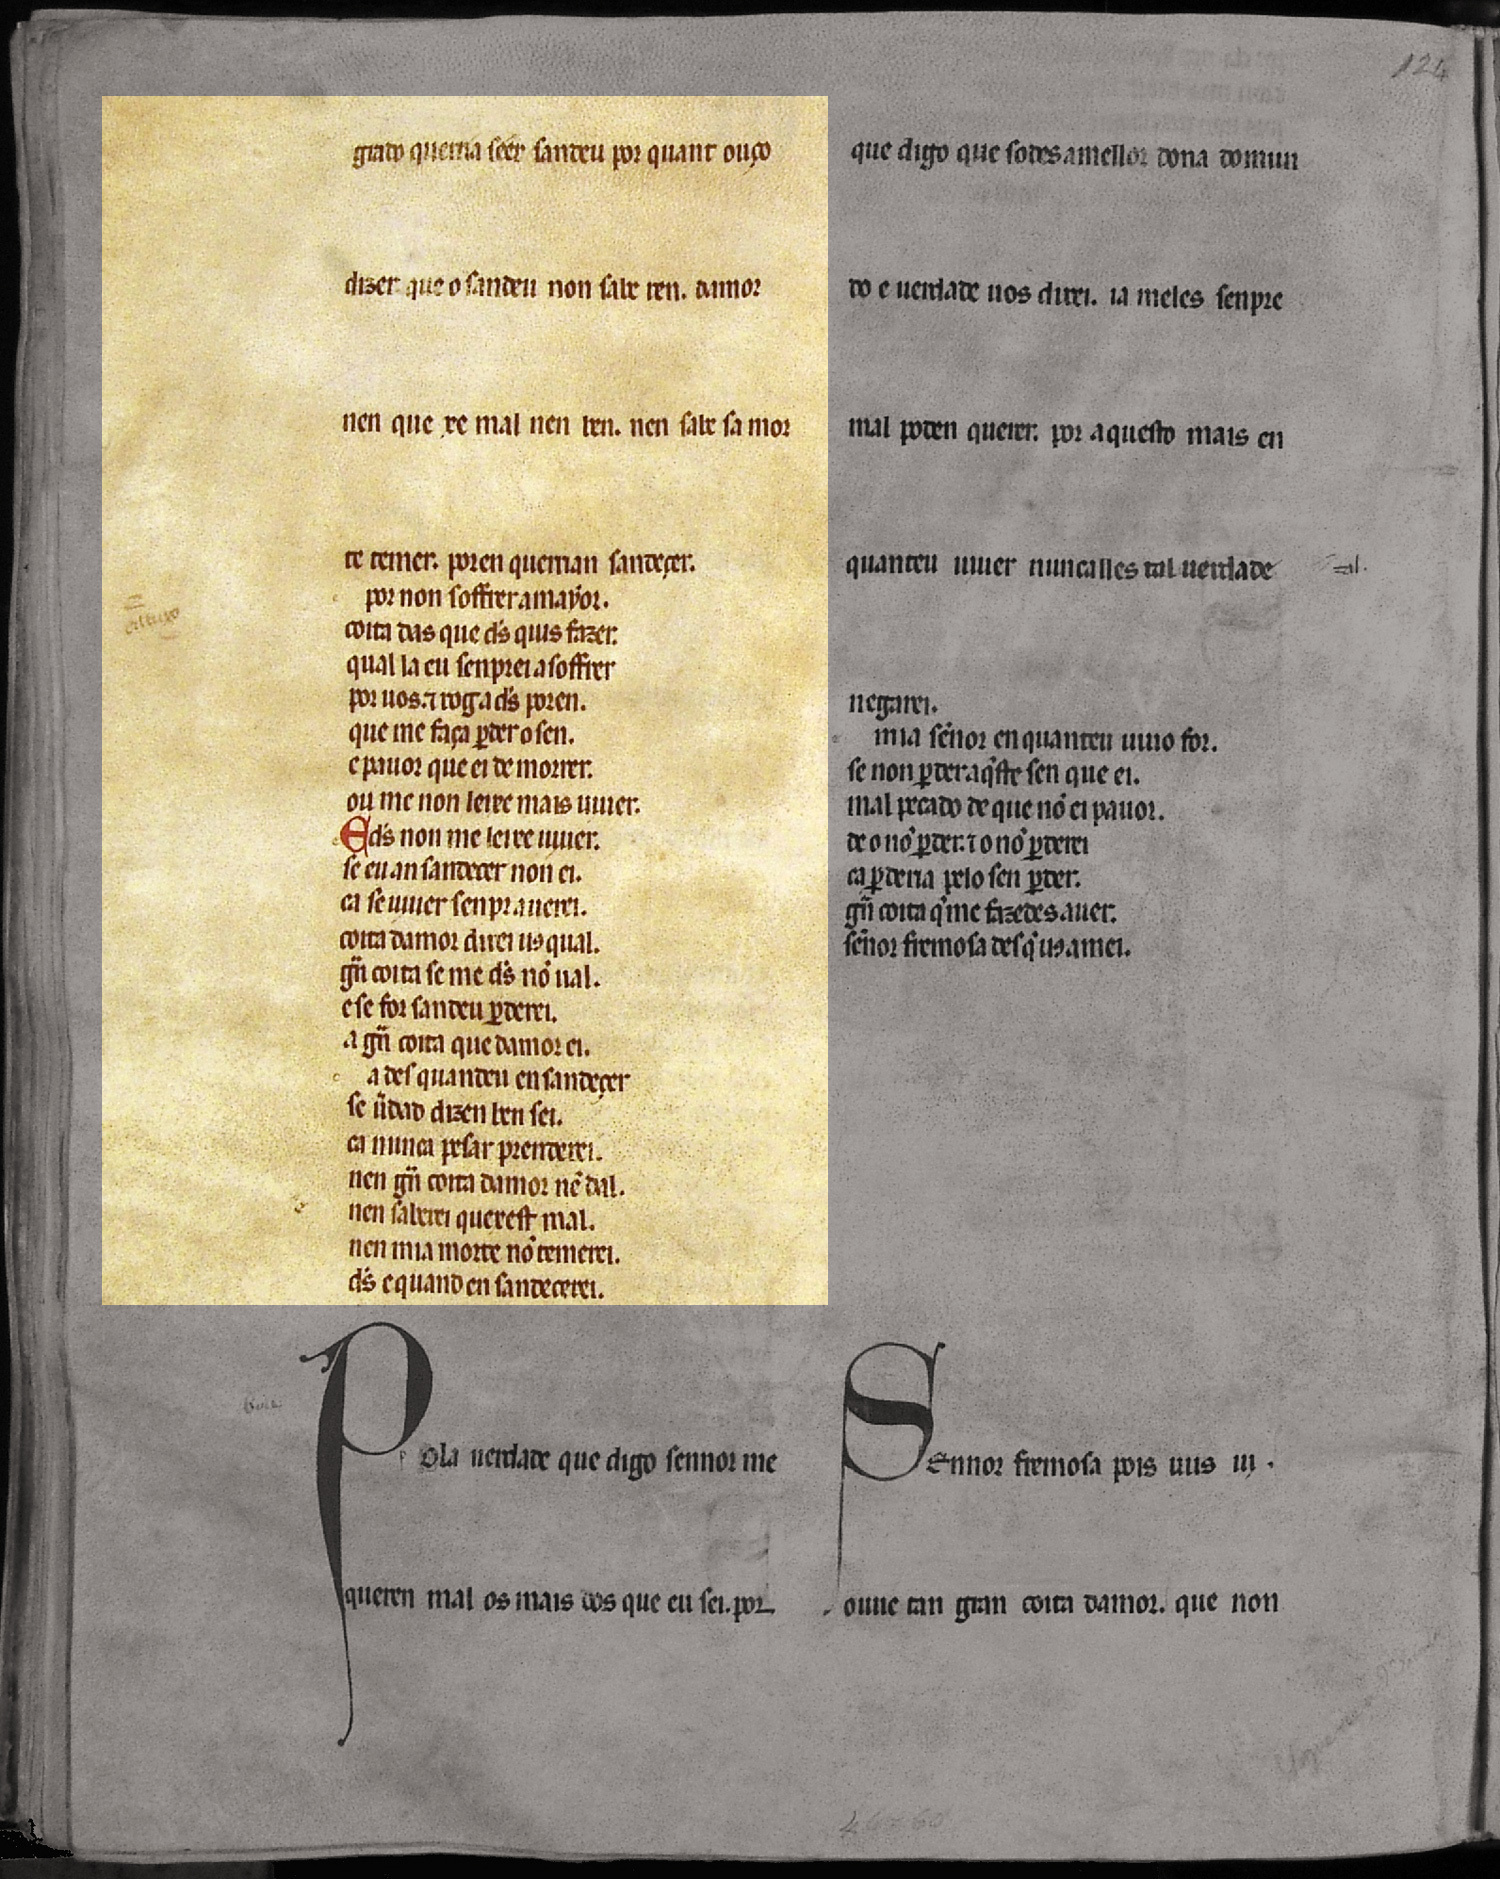 grado querria seer sandeu por quant ouço
dizer que o sandeu non sabe ren. damor
nen que xe mal nen ben. nen sabe sa mor
te temer. poren querrian sandeçer.
por non soffrer a mayor.
coita das que d̅s quis fazer.
qual la eu senprei a soffrer
por uos. ⁊ rog a d̅s poren.
que me faça ꝑder o sen.
e pauor que ei de morrer.
ou me non leixe mais uiuer.
E d̅s non me leixe uiuer.
se eu an sandecer non ei.
ca se uiuer senpr auerei.
coita damor direi uꝯ qual.
gn̅ coita se me d̅s nõ ual.
e se for sandeu ꝑderei.
a gn̅ coita que damor ei.
a des quandeu ensandeçer
se u̅dad dizen ben sei.
ca nunca pesar prenderei.
nen gn̅ coita damor nẽ dal.
nen saberei que xest mal.
nen mia morte nõ temerei.
d̅s e quand en sandecerei.
Pola uerdade que digo sennor me
queren mal os mais dos que eu sei. por
124
que digo que sodes a mellor dona do mun
do e uerdade uos direi. ia meles senpre
mal poden querer. por aquesto mais en
quanteu uiuer nunca lles tal uerdade
negarei.
mia señor en quanteu uiuo for.
se non ꝑder a q̃ste sen que ei.
mal pecado de que nõ ei pauor.
de o nõ ꝑder. ⁊ o nõ ꝑderei
ca ꝑderia pelo sen ꝑder.
gn̅ coita q̃ me fazedes auer.
señor fremosa des q̃ uꝯ amei.
Sennor fremosa pois uus ui.
ouue tan gran coita damor. que non